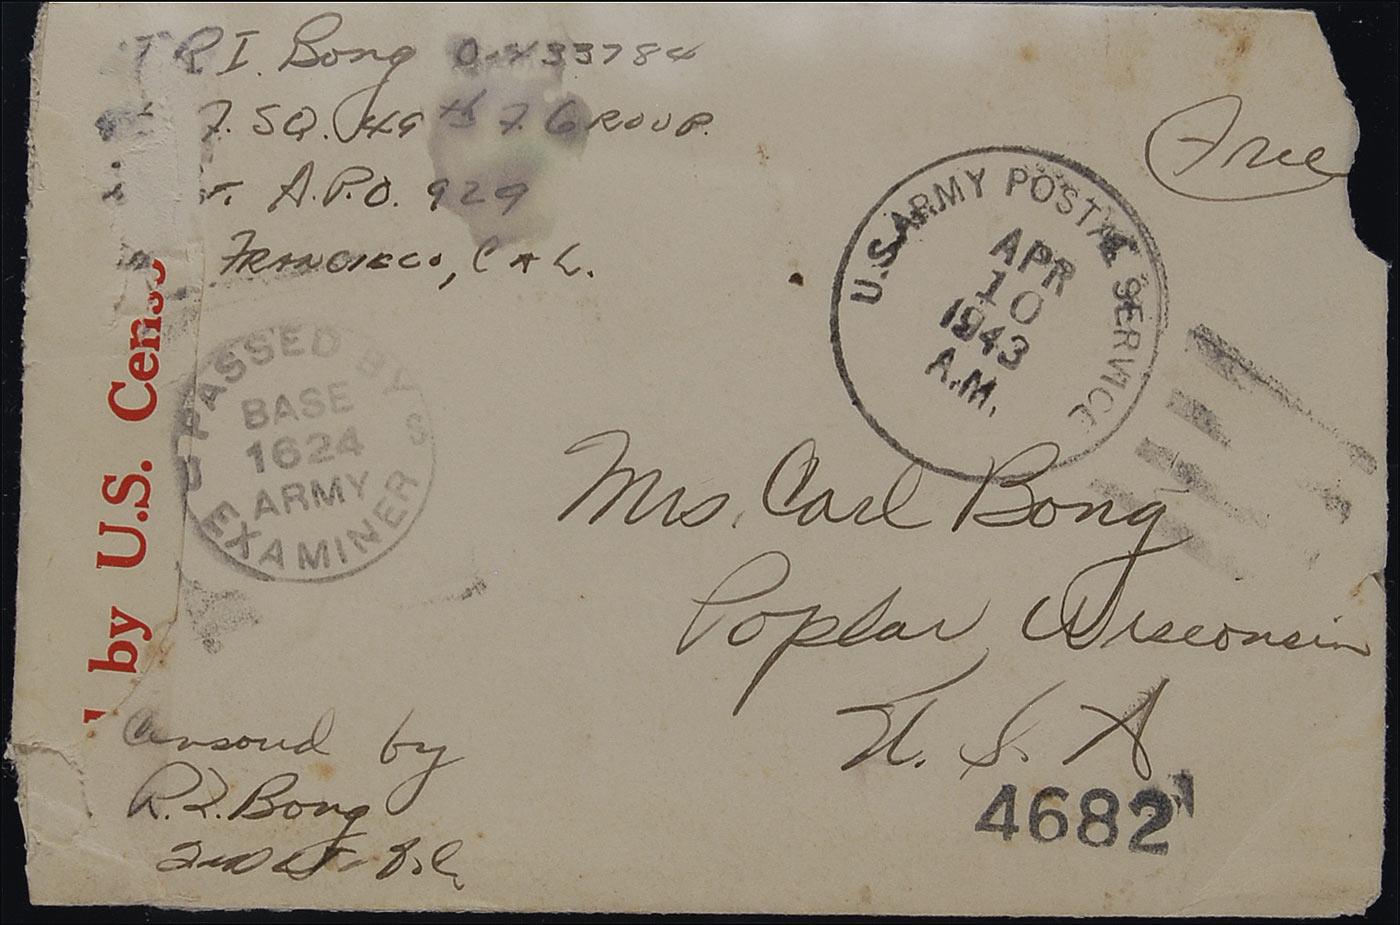 R I. Bong O-433784
F. SQ. 49th F. GROUP.
A.P.O. 929
FRANCISCO, CAL.
Free
U.S. ARMY POSTAL SERVICE
APR
10
1943
A.M.
by U.S. Censo
PASSED BY
BASE
1624
ARMY
EXAMINER
S
Mrs. Carl Bong
Poplar, Wisconsin
U. S. A
4682
Censored by
R. I. Bong